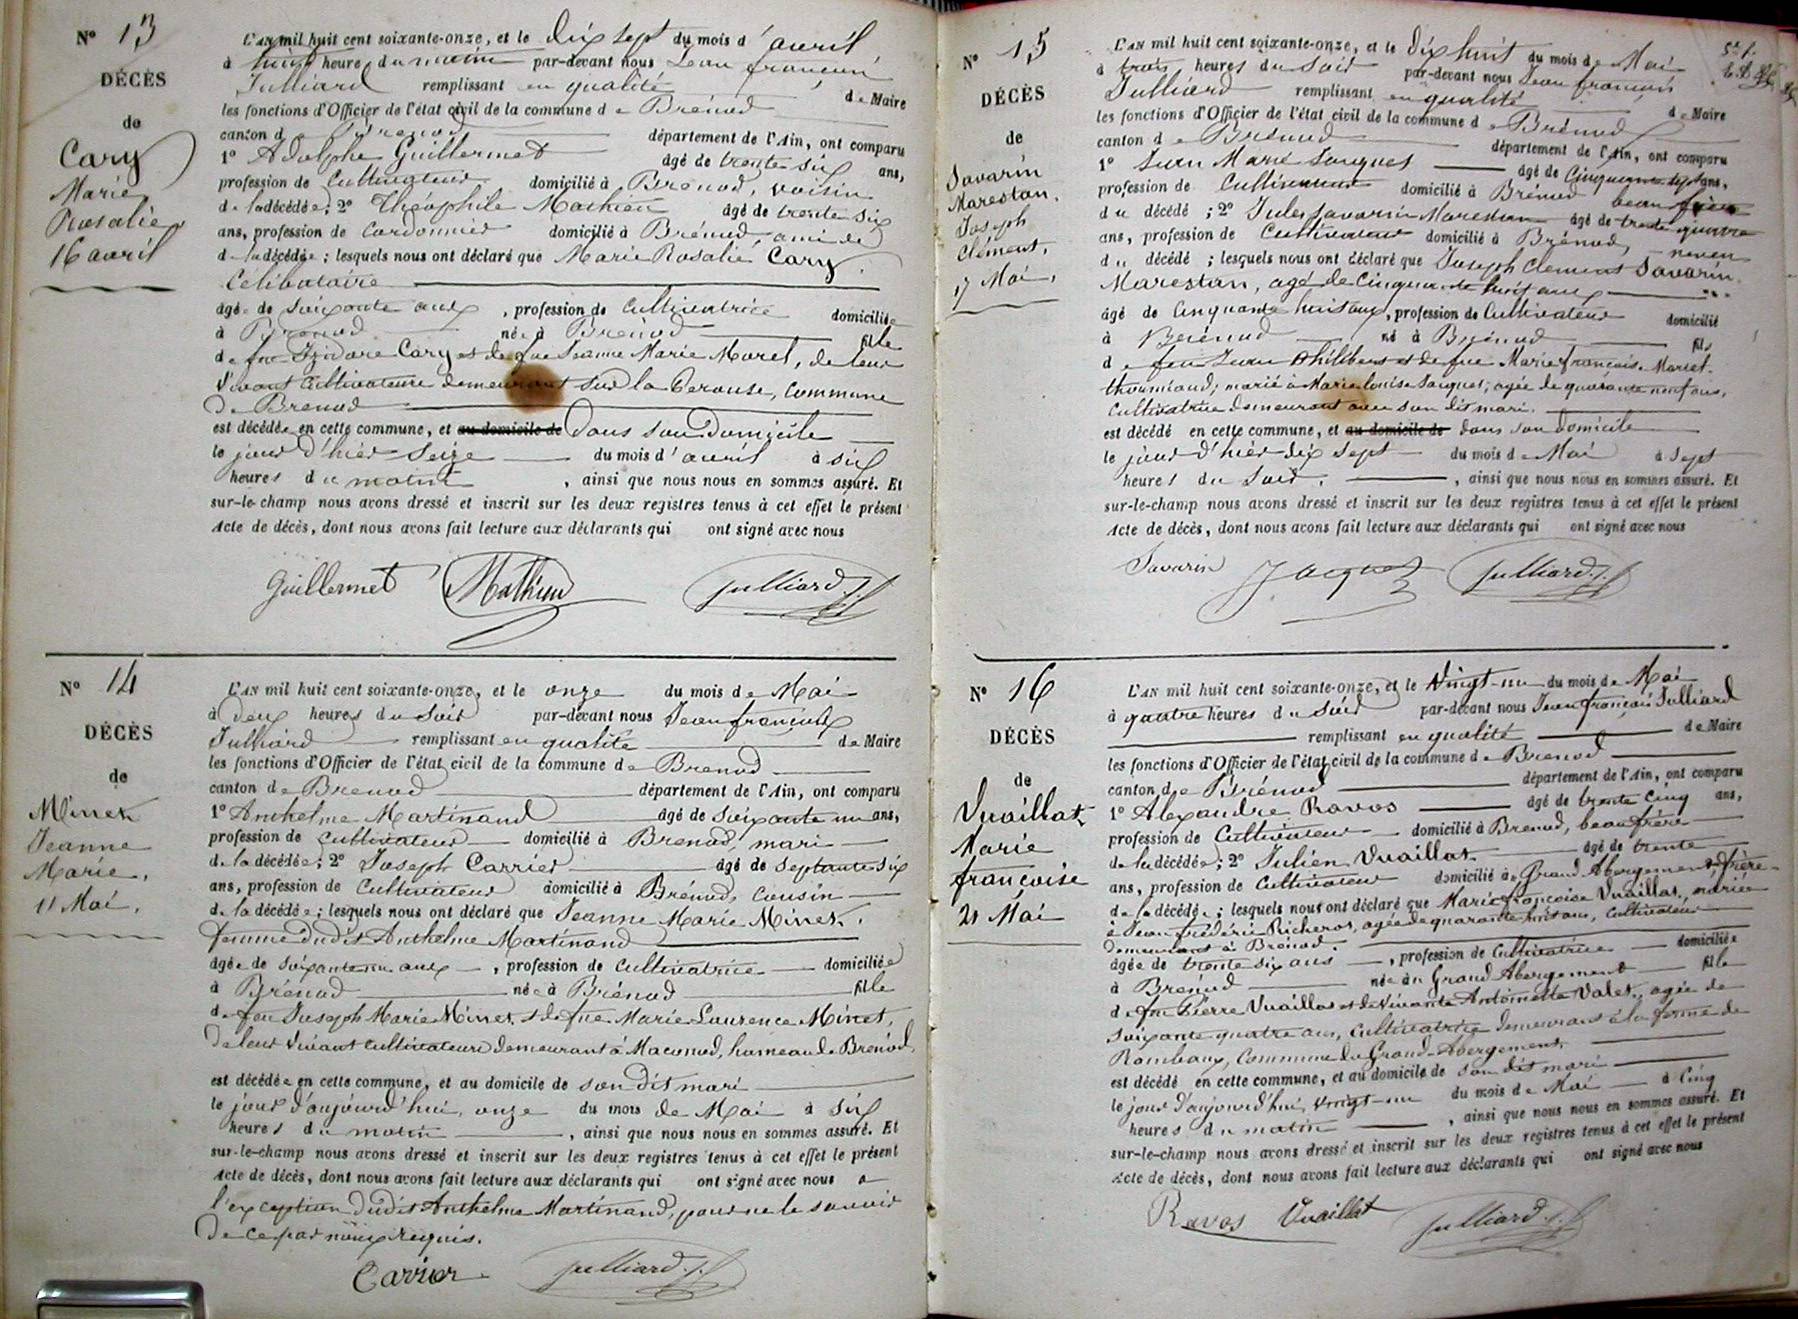 N° 13
DÉCÈS
de
Cary
Marie
Rosalie
16 avril
L'AN mil huit cent soixante-onze, et le dix sept du mois d'avril
à huit heure du matin par-devant nous Jean françois
Julliard remplissant en qualité de Maire
les fonctions d'Officier de l'état civil de la commune de Brénod
canton de Brénod département de l'Ain, ont comparu
1° Adolphe Guillermet âgé de trente six ans,
profession de Cultivateur domicilié à Brénod, voisin
de la décédée ; 2° Théophile Mathieu âgé de trente six
ans, profession de Cordonnier domicilié à Brénod, ami de
de la décédée ; lesquels nous ont déclaré que Marie Rosalie Cary
Célibataire
âgée de soixante ans, profession de Cultivatrice domiciliée
à Brénod née à Brénod fille
de feu Izidore Cary et de feue Jeanne Marie Morel, de leur
vivant Cultivateurs demeurant sur la Perouse, Commune
de Brenod
est décédée en cette commune, et au domicile de dans son Domicile
le jour d'hier seize du mois d'avril à six
heures du matin, ainsi que nous nous en sommes assuré. Et
sur-le-champ nous avons dressé et inscrit sur les deux registres tenus à cet effet le présent
Acte de décès, dont nous avons fait lecture aux déclarants qui ont signé avec nous
Guillermet Mathieu Julliard J. f.
N° 14
DÉCÈS
de
Minet
Jeanne
Marie,
11 Mai.
L'AN mil huit cent soixante-onze, et le onze du mois de Mai
à deux heures du soir par-devant nous Jean françois
Julliard remplissant en qualité de Maire
les fonctions d'Officier de l'état civil de la commune de Brenod
canton de Brenod département de l'Ain, ont comparu
1° Anthelme Martinand âgé de soixante un ans,
profession de Cultivateur domicilié à Brenod, mari
de la décédée ; 2° Joseph Carrier âgé de septante six
ans, profession de Cultivateur domicilié à Brénod, Cousin
de la décédée ; lesquels nous ont déclaré que Jeanne Marie Minet,
femme dudit Anthelme Martinand
âgée de soixante un ans, profession de Cultivatrice domiciliée
à Brénod née à Brénod fille
de feu Joseph Marie Minet et de feue Marie Laurence Minet,
De leur vivant Cultivateurs demeurant à Maconod, hameau de Brenod,
est décédée en cette commune, et au domicile de son dit mari
le jour d'aujourd'hui, onze du mois de Mai à six
heures du matin, ainsi que nous nous en sommes assuré. Et
sur-le-champ nous avons dressé et inscrit sur les deux registres tenus à cet effet le présent
Acte de décès, dont nous avons fait lecture aux déclarants qui ont signé avec nous a
l'exception dudit Anthelme Martinand, pour ne le savoir
de ce par nous requis.
Carrier Julliard J. f.
N° 15
DÉCÈS
de
Savarin
Marestan,
Joseph
Clément,
17 Mai,
L'AN mil huit cent soixante-onze, et le dix huit du mois de Mai
à trois heures du soir par-devant nous Jean françois
Julliard remplissant en qualité de Maire
les fonctions d'Officier de l'état civil de la commune de Brénod
canton de Brénod département de l'Ain, ont comparu
1° Jean Marie Jacquet âgé de Cinquante sept ans,
profession de Cultivateur domicilié à Brénod beau frère
du décédé ; 2° Jules Savarin Marestan âgé de trente quatre
ans, profession de Cultivateur domicilié à Brénod, neveu
du décédé ; lesquels nous ont déclaré que Joseph Clement Savarin
Marestan, agé de Cinquante huit ans
âgé de Cinquante huit ans, profession de Cultivateur domicilié
à Brénod né à Brénod fils
de feu Jean Philibert et de feue Marie françoise Moriet
thoumiand ; marié à Marie Louise Jacquet, agée de quarante neuf ans,
Cultivatrice demeurant avec son dit mari.
est décédé en cette commune, et au domicile de dans son domicile
le jour d'hier dix sept du mois de Mai à sept
heures du soir, ainsi que nous nous en sommes assuré. Et
sur-le-champ nous avons dressé et inscrit sur les deux registres tenus à cet effet le présent
Acte de décès, dont nous avons fait lecture aux déclarants qui ont signé avec nous
Savarin Jacquet Julliard J. f.
N° 16
DÉCÈS
de
Vuaillat
Marie
françoise
21 Mai
L'AN mil huit cent soixante-onze, et le Vingt-un du mois de Mai
à quatre heures du soir par-devant nous Jean françois Julliard
remplissant en qualité de Maire
les fonctions d'Officier de l'état civil de la commune de Brenod
canton de Brénod département de l'Ain, ont comparu
1° Alexandre Ravos âgé de trente cinq ans,
profession de Cultivateur domicilié à Brenod, beau frère
de la décédée ; 2° Julien Vuaillat âgé de trente
ans, profession de Cultivateur domicilié à Grand Abergement frère
de la décédée ; lesquels nous ont déclaré que Marie françoise Vuaillat, mariée
à Jean frédéric Richerot, agé de quarante huit ans, Cultivateur
demeurant à Brénod.
âgée de trente six ans, profession de Cultivatrice domiciliée
à Brenod née au Grand Abergement fille
de feu Pierre Vuaillat et de vivante Antoinette Valet, agée de
soixante quatre ans, Cultivatrice demeurant à la ferme de
Rambaux, Commune du Grand-Abergement.
est décédé en cette commune, et au domicile de son dit mari
le jour d'aujourd'hui, vingt-un du mois de Mai à Cinq
heures du matin, ainsi que nous nous en sommes assuré. Et
sur-le-champ nous avons dressé et inscrit sur les deux registres tenus à cet effet le présent
Acte de décès, dont nous avons fait lecture aux déclarants qui ont signé avec nous
Ravos Vuaillat Julliard J. f.